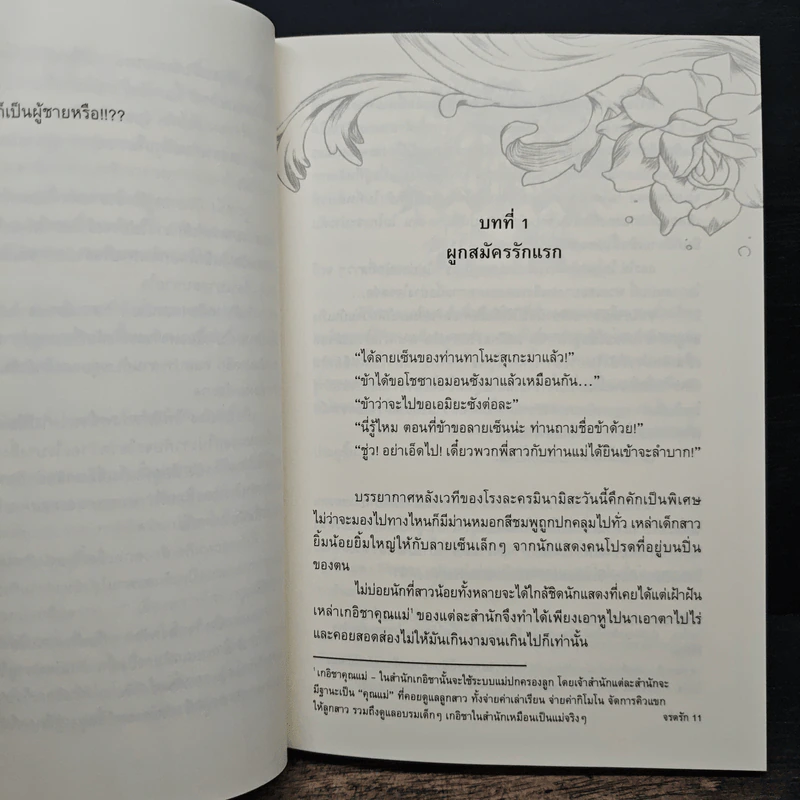 ก็เป็นผู้ชายหรือ!!??
บทที่ 1
ผูกสมัครรักแรก
“ได้ลายเซ็นของท่านทาโนะสุเกะมาแล้ว!”
“ข้าได้ขอโชซาเอมอนซังมาแล้วเหมือนกัน...”
“ข้าว่าจะไปขอเอมิยะซังต่อละ”
“นี่รู้ไหม ตอนที่ข้าขอลายเซ็นน่ะ ท่านถามชื่อข้าด้วย!”
“ชู่ว! อย่าเอ็ดไป! เดี๋ยวพวกพี่สาวกับท่านแม่ได้ยินเข้าจะลำบาก!”
บรรยากาศหลังเวทีของโรงละครมินามิสะวันนี้คึกคักเป็นพิเศษ
ไม่ว่าจะมองไปทางไหนก็มีม่านหมอกสีชมพูถูกปกคลุมไปทั่ว เหล่าเด็กสาว
ยิ้มน้อยยิ้มใหญ่ให้กับลายเซ็นเล็กๆ จากนักแสดงคนโปรดที่อยู่บนปิ่น
ของตน
ไม่บ่อยนักที่สาวน้อยทั้งหลายจะได้ใกล้ชิดนักแสดงที่เคยได้แต่เฝ้าฝัน
เหล่าเกอิชาคุณแม่¹ ของแต่ละสำนักจึงทำได้เพียงเอาหูไปนาเอาตาไปไร่
และคอยสอดส่องไม่ให้มันเกินงามจนเกินไปก็เท่านั้น
¹ เกอิชาคุณแม่ - ในสำนักเกอิชานั้นจะใช้ระบบแม่ปกครองลูก โดยเจ้าสำนักแต่ละสำนักจะ
มีฐานะเป็น “คุณแม่” ที่คอยดูแลลูกสาว ทั้งจ่ายค่าเล่าเรียน จ่ายค่ากิโมโน จัดการคิวแขก
ให้ลูกสาว รวมถึงดูแลอบรมเด็กๆ เกอิชาในสำนักเหมือนเป็นแม่จริงๆ
จรดรัก 11